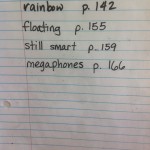 rainbow p. 142
floating p. 155
still smart p. 159
megaphones p. 166